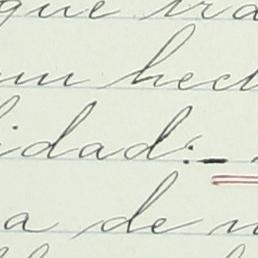 que tra
un hech
idad:-
a de